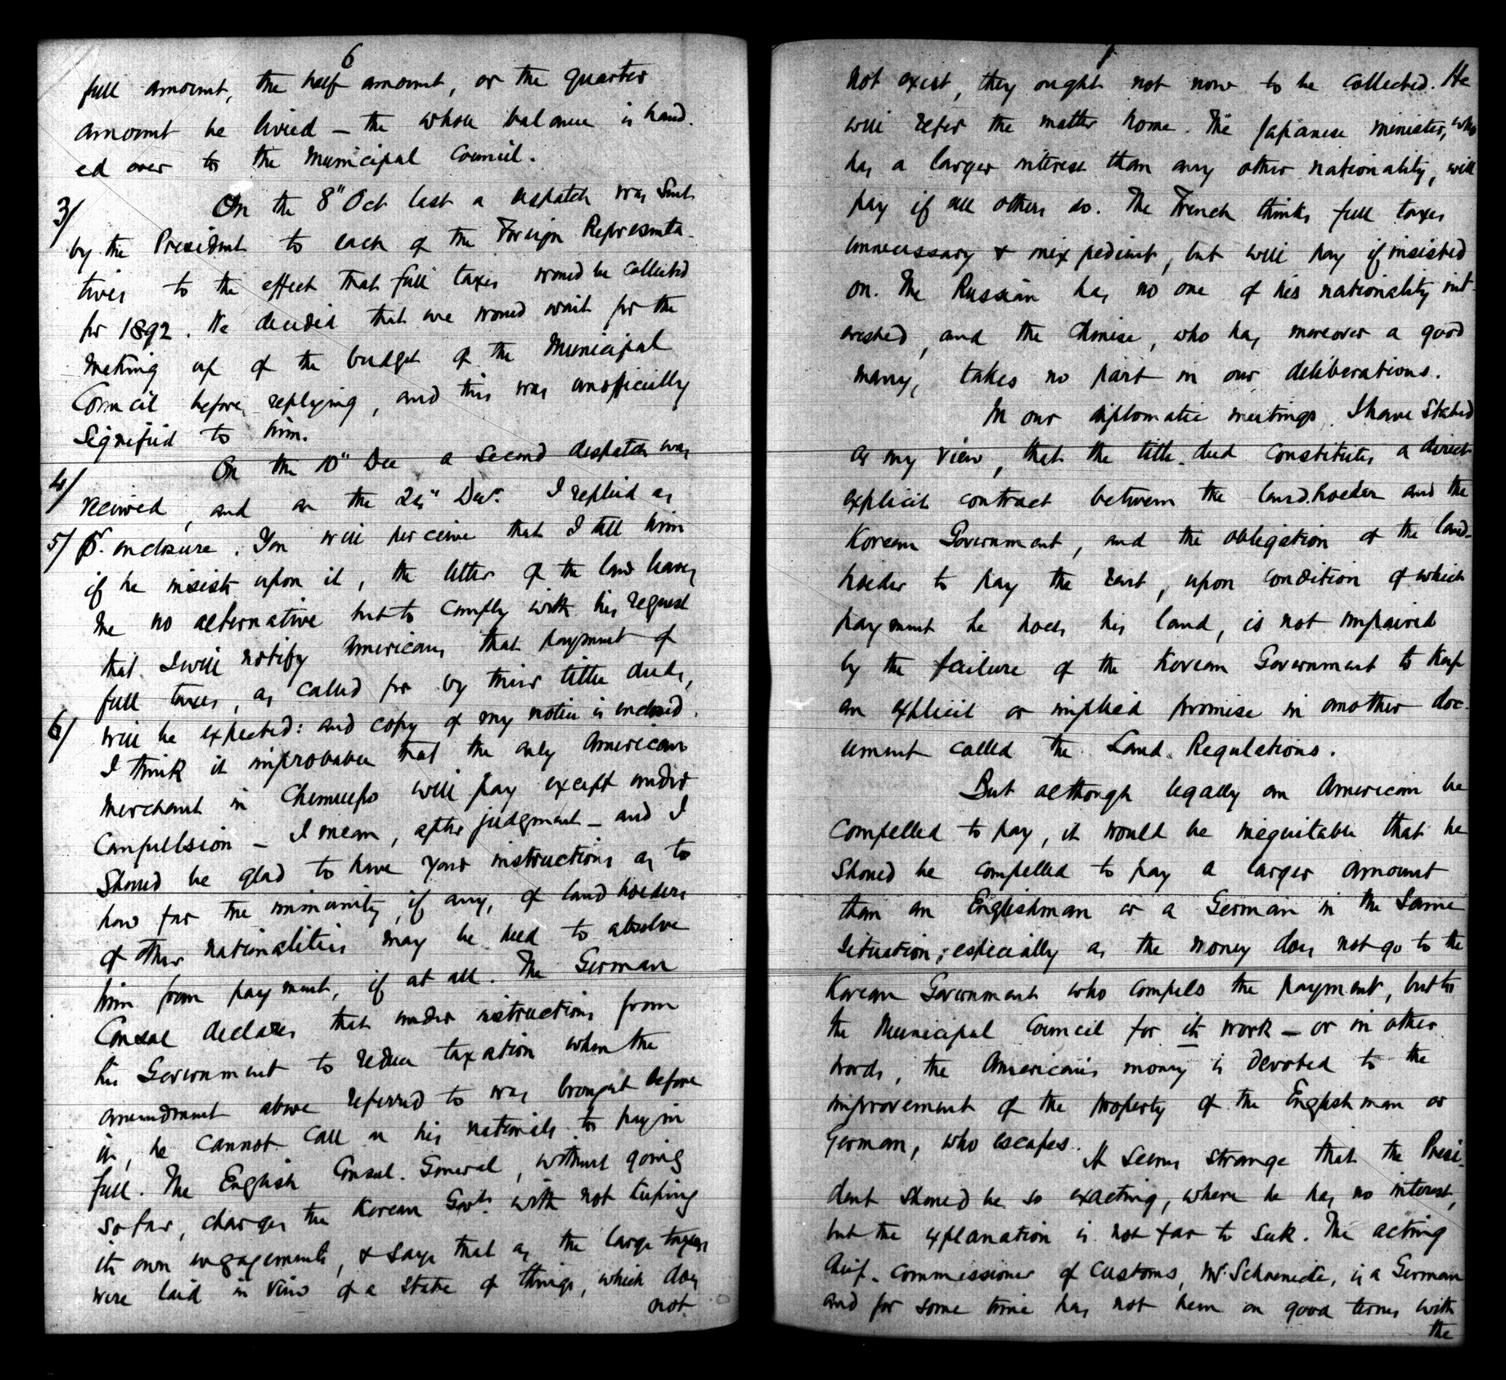 6
full amount, the half amount, or the quarter
amount be livied — the whole balance is hand-
ed over to the Municipal Council.
3/ On the 8" Oct last a despatch was sent
by the President to each of the Foreign Representa-
tives to the effect that full taxes would be collected
for 1892. We decided that we would wait for the
making up of the budget of the Municipal
Council before replying, and this was unofficially
signified to him.
4/ On the 10" Dec a second despatch was
received, and on the 24" Dec. I replied as
5/ pr. enclosure. You will perceive that I tell him
if he insists upon it, the letter of the law leaves
me no alternative but to comply with his request
that I will notify Americans that payment of
full taxes, as called for by their title deeds,
6/ will be expected: and copy of my notice is enclosed.
I think it improbable that the only American
merchant in Chemulpo will pay except under
compulsion — I mean, after judgment — and I
should be glad to have your instructions as to
how far the immunity, if any, of land holders
of other nationalities may be held to absolve
him from payment, if at all. The German
Consul declares that under instructions from
his Government to reduce taxation when the
amendment above referred to was brought before
it, he cannot call on his nationals to pay in
full. The English Consul-General, without going
so far, charges the Korean Govt. with not keeping
its own engagements, & says that as the large taxes
were laid in view of a state of things, which does
not
not exist, they ought not now to be collected. He
will refer the matter home. The Japanese minister, who
has a larger interest than any other nationality, will
pay if all others do. The French thinks full taxes
unnecessary & inexpedient, but will pay if insisted
on. The Russian has no one of his nationality int-
erested, and the Chinese, who has moreover a good
many, takes no part in our deliberations.
In our diplomatic meetings, I have stated
as my view, that the title-deed constitutes a direct
explicit contract between the landholder and the
Korean Government, and the obligation of the land-
holder to pay the rent, upon condition of which
payment he holds his land, is not impaired
by the failure of the Korean Government to keep
an explicit or implied promise in another doc-
ument called the Land Regulations.
But although legally an American be
compelled to pay, it would be inequitable that he
should be compelled to pay a larger amount
than an Englishman or a German in the same
situation; especially as the money does not go to the
Korean Government who compels the payment, but to
the Municipal Council for its work — or in other
words, the American's money is devoted to the
improvement of the property of the Englishman or
German, who escapes. It seems strange that the Presi-
dent should be so exacting, where he has no interest,
but the explanation is not far to seek. The acting
Chief-Commissioner of Customs, Mr Schoenicke, is a German
and for some time has not been on good terms with
the